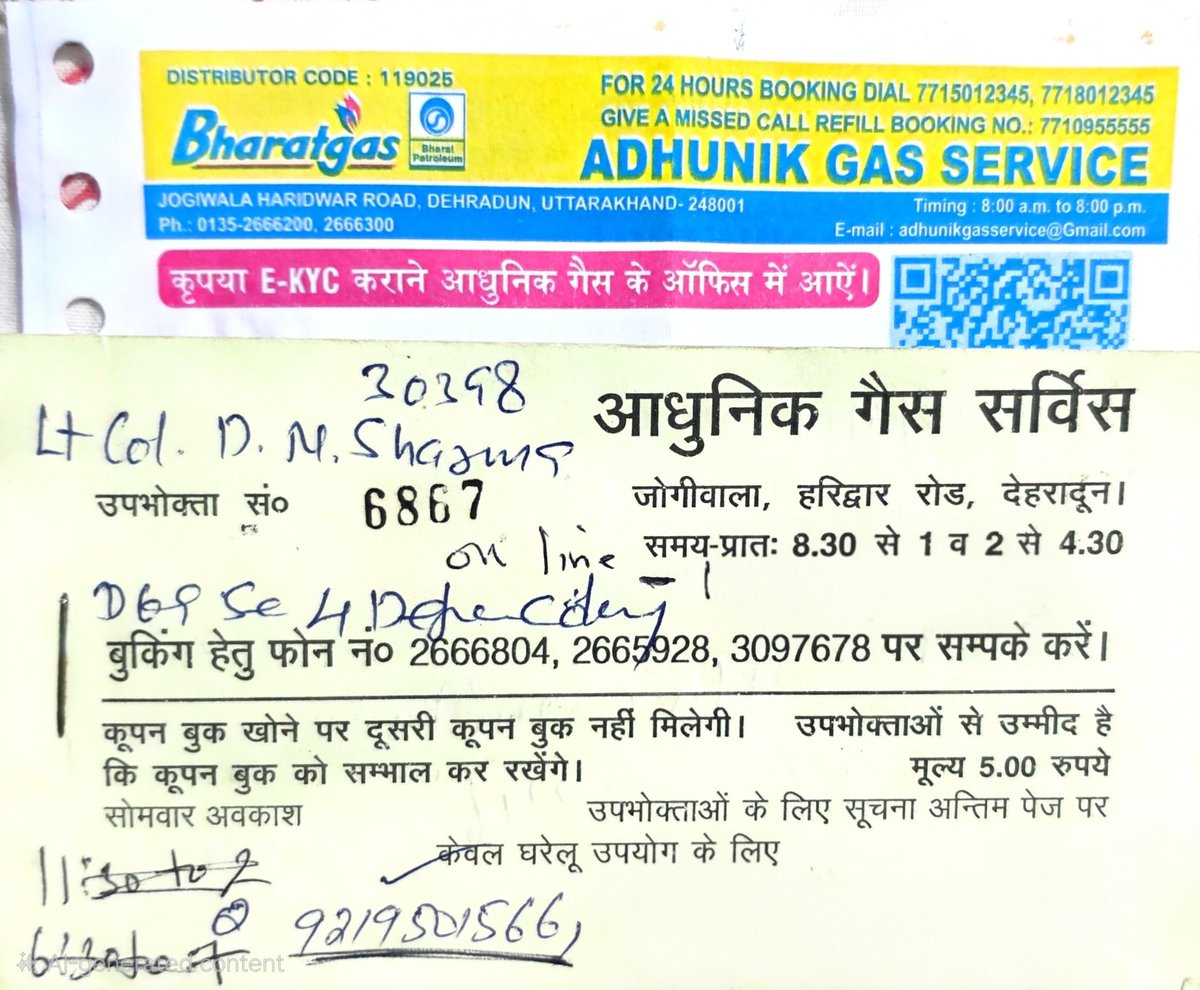 DISTRIBUTOR CODE : 119025
FOR 24 HOURS BOOKING DIAL 7715012345, 7718012345
GIVE A MISSED CALL REFILL BOOKING NO.: 7710955555
Bharatgas
Bharat Petroleum
ADHUNIK GAS SERVICE
JOGIWALA HARIDWAR ROAD, DEHRADUN, UTTARAKHAND- 248001
Timing : 8:00 a.m. to 8:00 p.m.
Ph.: 0135-2666200, 2666300
E-mail : adhunikgasservice@Gmail.com
कृपया E-KYC कराने आधुनिक गैस के ऑफिस में आऐं।
30398
आधुनिक गैस सर्विस
Lt Col. D. N. Sharma
उपभोक्ता सं० 6867
जोगीवाला, हरिद्वार रोड, देहरादून।
on line
समय-प्रातः 8.30 से 1 व 2 से 4.30
Defence Colony
बुकिंग हेतु फोन नं० 2666804, 2665928, 3097678 पर सम्पर्क करें।
कूपन बुक खोने पर दूसरी कूपन बुक नहीं मिलेगी। उपभोक्ताओं से उम्मीद है
कि कूपन बुक को सम्भाल कर रखेंगे। मूल्य 5.00 रुपये
सोमवार अवकाश उपभोक्ताओं के लिए सूचना अन्तिम पेज पर
केवल घरेलू उपयोग के लिए
11:30 to 2
9219501566,
AI-generated content